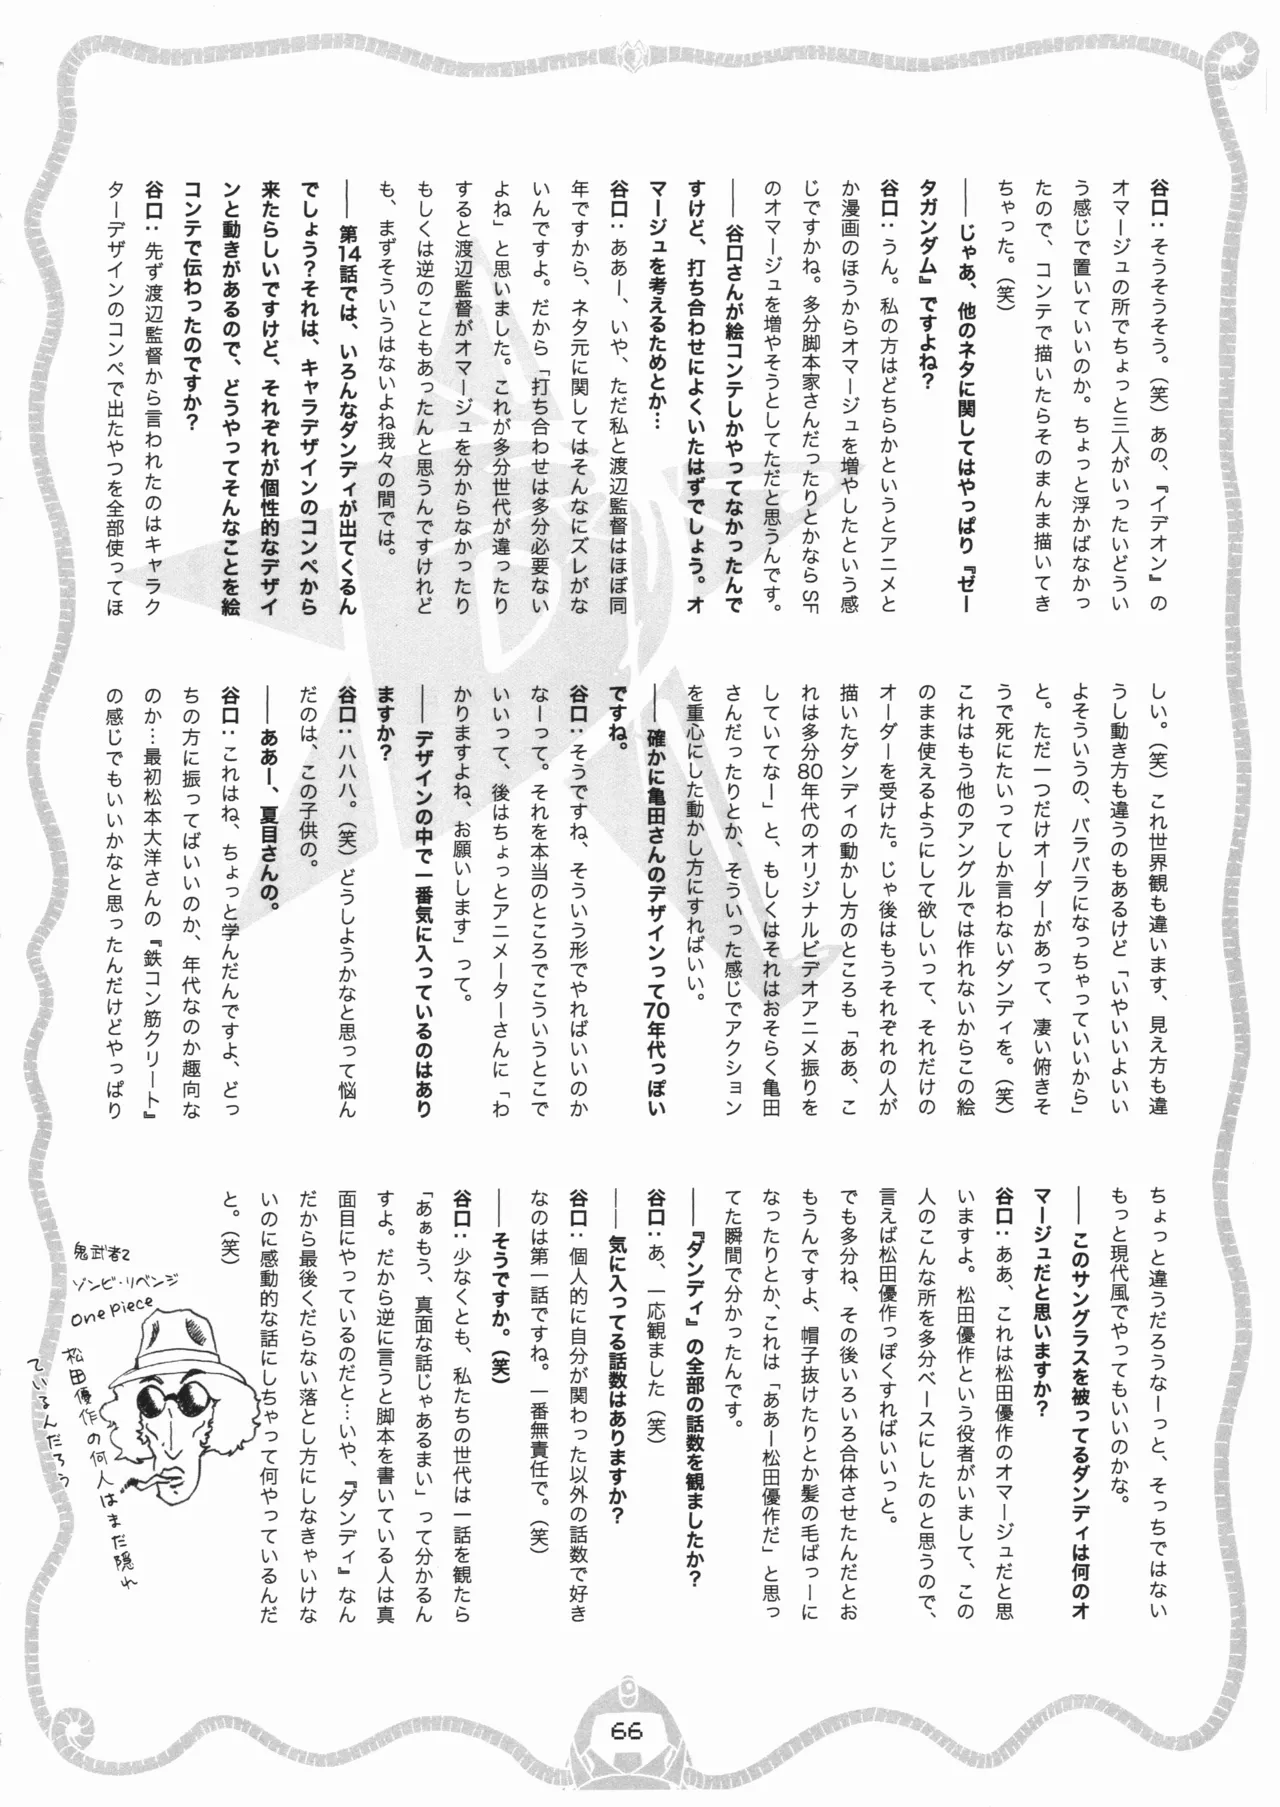 谷口：そうそうそう。（笑）あの、『イデオン』の
オマージュの所でちょっと三人がいったいどうい
う感じで置いていいのか。ちょっと浮かばなかっ
たので、コンテで描いたらそのまんま描いてき
ちゃった。（笑）
――じゃあ、他のネタに関してはやっぱり『ゼー
タガンダム』ですよね？
谷口：うん。私の方はどちらかというとアニメと
か漫画のほうからオマージュを増やしたという感
じですかね。多分脚本家さんだったりとかならSF
のオマージュを増やそうとしてただと思うんです。
――谷口さんが絵コンテしかやってなかったんで
すけど、打ち合わせによくいたはずでしょう。オ
マージュを考えるためとか…
谷口：ああー、いや、ただ私と渡辺監督はほぼ同
年ですから、ネタ元に関してはそんなにズレがな
いんですよ。だから「打ち合わせは多分必要ない
よね」と思いました。これが多分世代が違ったり
すると渡辺監督がオマージュを分からなかったり
もしくは逆のこともあったんと思うんですけれど
も、まずそういうはないよね我々の間では。
――第14話では、いろんなダンディが出てくるん
でしょう？それは、キャラデザインのコンペから
来たらしいですけど、それぞれが個性的なデザイ
ンと動きがあるので、どうやってそんなことを絵
コンテで伝わったのですか？
谷口：先ず渡辺監督から言われたのはキャラク
ターデザインのコンペで出たやつを全部使ってほ
しい。（笑）これ世界観も違います、見え方も違
うし動き方も違うのもあるけど「いやいいよいい
よそういうの、バラバラになっちゃっていいから」
と。ただ一つだけオーダーがあって、凄い俯きそ
うで死にたいってしか言わないダンディを。（笑）
これはもう他のアングルでは作れないからこの絵
のまま使えるようにして欲しいって、それだけの
オーダーを受けた。じゃ後はもうそれぞれの人が
描いたダンディの動かし方のところも「ああ、こ
れは多分80年代のオリジナルビデオアニメ振りを
していてなー」と、もしくはそれはおそらく亀田
さんだったりとか、そういった感じでアクション
を重心にした動かし方にすればいい。
――確かに亀田さんのデザインって70年代っぽい
ですね。
谷口：そうですね、そういう形でやればいいのか
なーって。それを本当のところでこういうとこで
いいって、後はちょっとアニメーターさんに「わ
かりますよね、お願いします」って。
――デザインの中で一番気に入っているのはあり
ますか？
谷口：ハハハ。（笑）どうしようかなと思って悩ん
だのは、この子供の。
――ああー、夏目さんの。
谷口：これはね、ちょっと学んだんですよ、どっ
ちの方に振ってばいいのか、年代なのか趣向な
のか…最初松本大洋さんの『鉄コン筋クリート』
の感じでもいいかなと思ったんだけどやっぱり
ちょっと違うだろうなーっと、そっちではない
もっと現代風でやってもいいのかな。
――このサングラスを被ってるダンディは何のオ
マージュだと思いますか？
谷口：ああ、これは松田優作のオマージュだと思
いますよ。松田優作という役者がいまして、この
人のこんな所を多分ベースにしたのと思うので、
言えば松田優作っぽくすればいいっと。
でも多分ね、その後いろいろ合体させたんだとお
もうんですよ、帽子抜けたりとか髪の毛ばっーに
なったりとか、これは「ああー松田優作だ」と思っ
てた瞬間で分かったんです。
――『ダンディ』の全部の話数を観ましたか？
谷口：あ、一応観ました（笑）
――気に入ってる話数はありますか？
谷口：個人的に自分が関わった以外の話数で好き
なのは第一話ですね。一番無責任で。（笑）
――そうですか。（笑）
谷口：少なくとも、私たちの世代は一話を観たら
「あぁもう、真面な話じゃあるまい」って分かるん
すよ。だから逆に言うと脚本を書いている人は真
面目にやっているのだと…いや、『ダンディ』なん
だから最後くだらない落とし方にしなきゃいけな
いのに感動的な話にしちゃって何やっているんだ
と。（笑）
鬼武者2
ゾンビ・リベンジ
one piece
松田優作の何人はまだ隠れ
ているんだろう
66